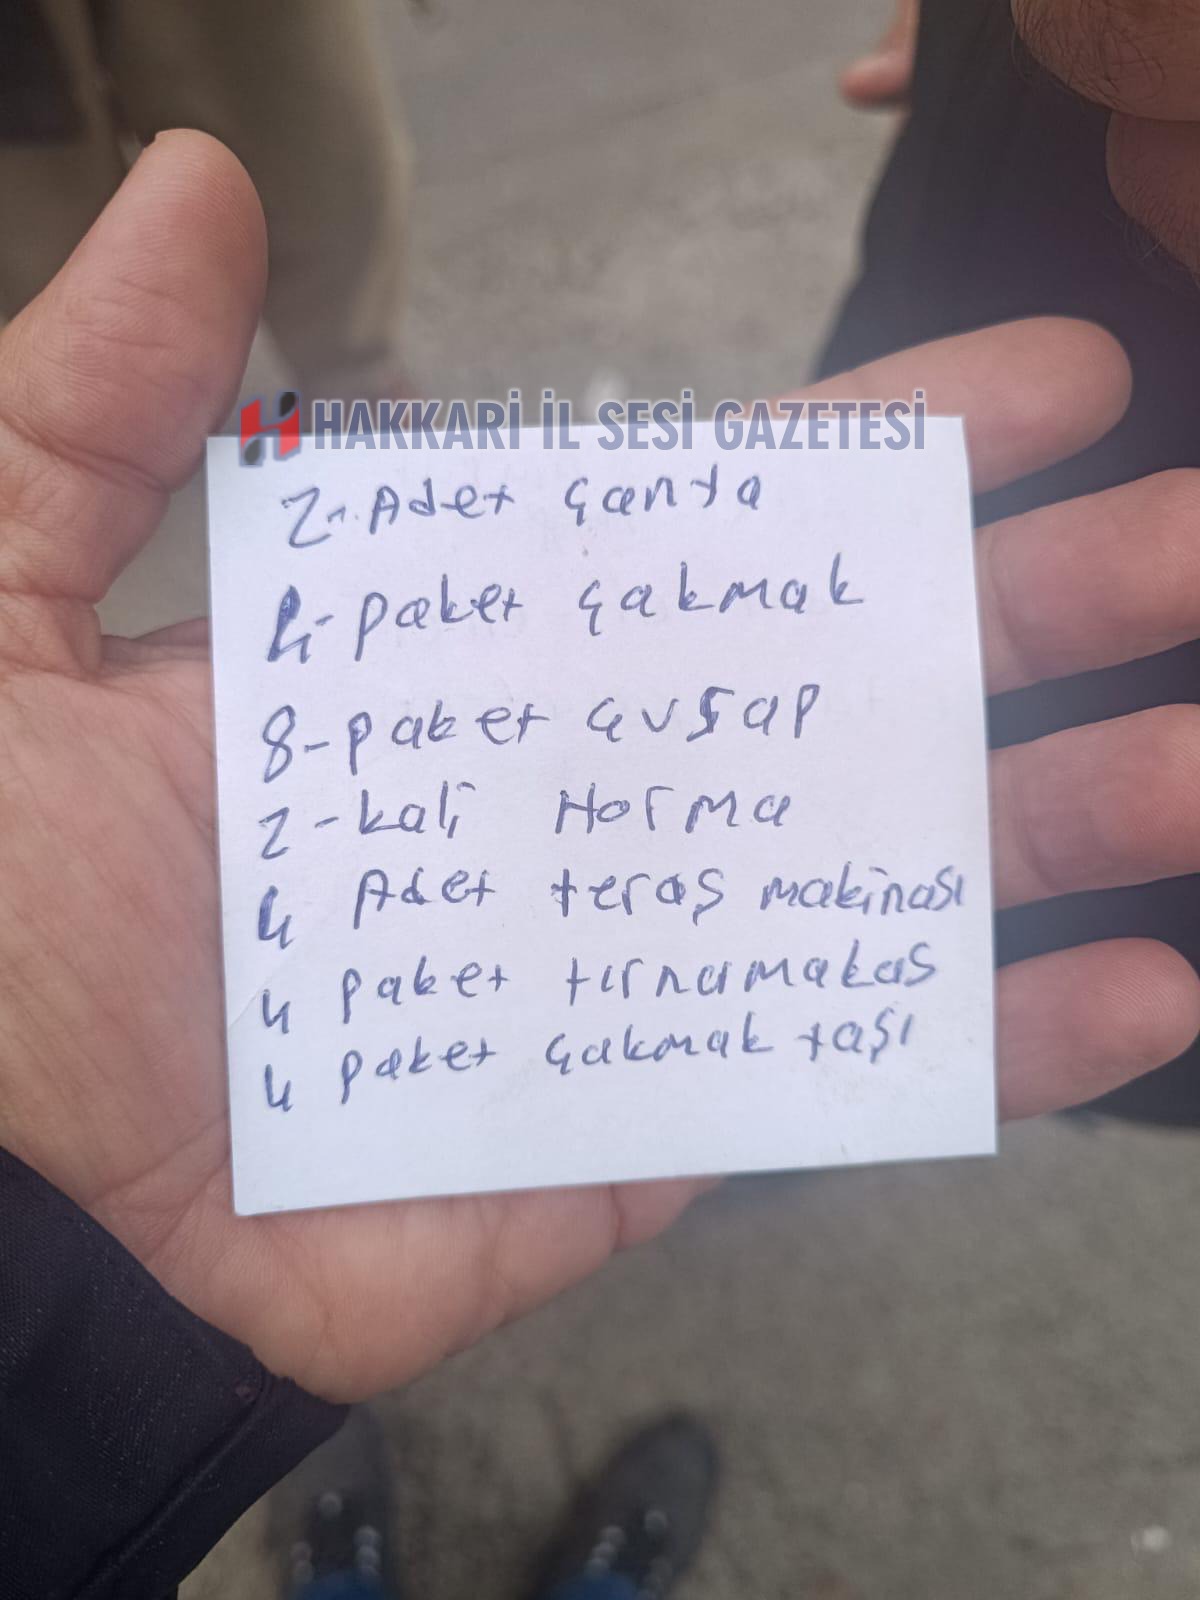 HAKKARİ İL SESİ GAZETESİ
2-Adet çanta
4-paket çakmak
8-paket çvşap
2-kali Horma
4 Adet teraş makinası
4 paket tırnamakas
4 paket çakmak taşı